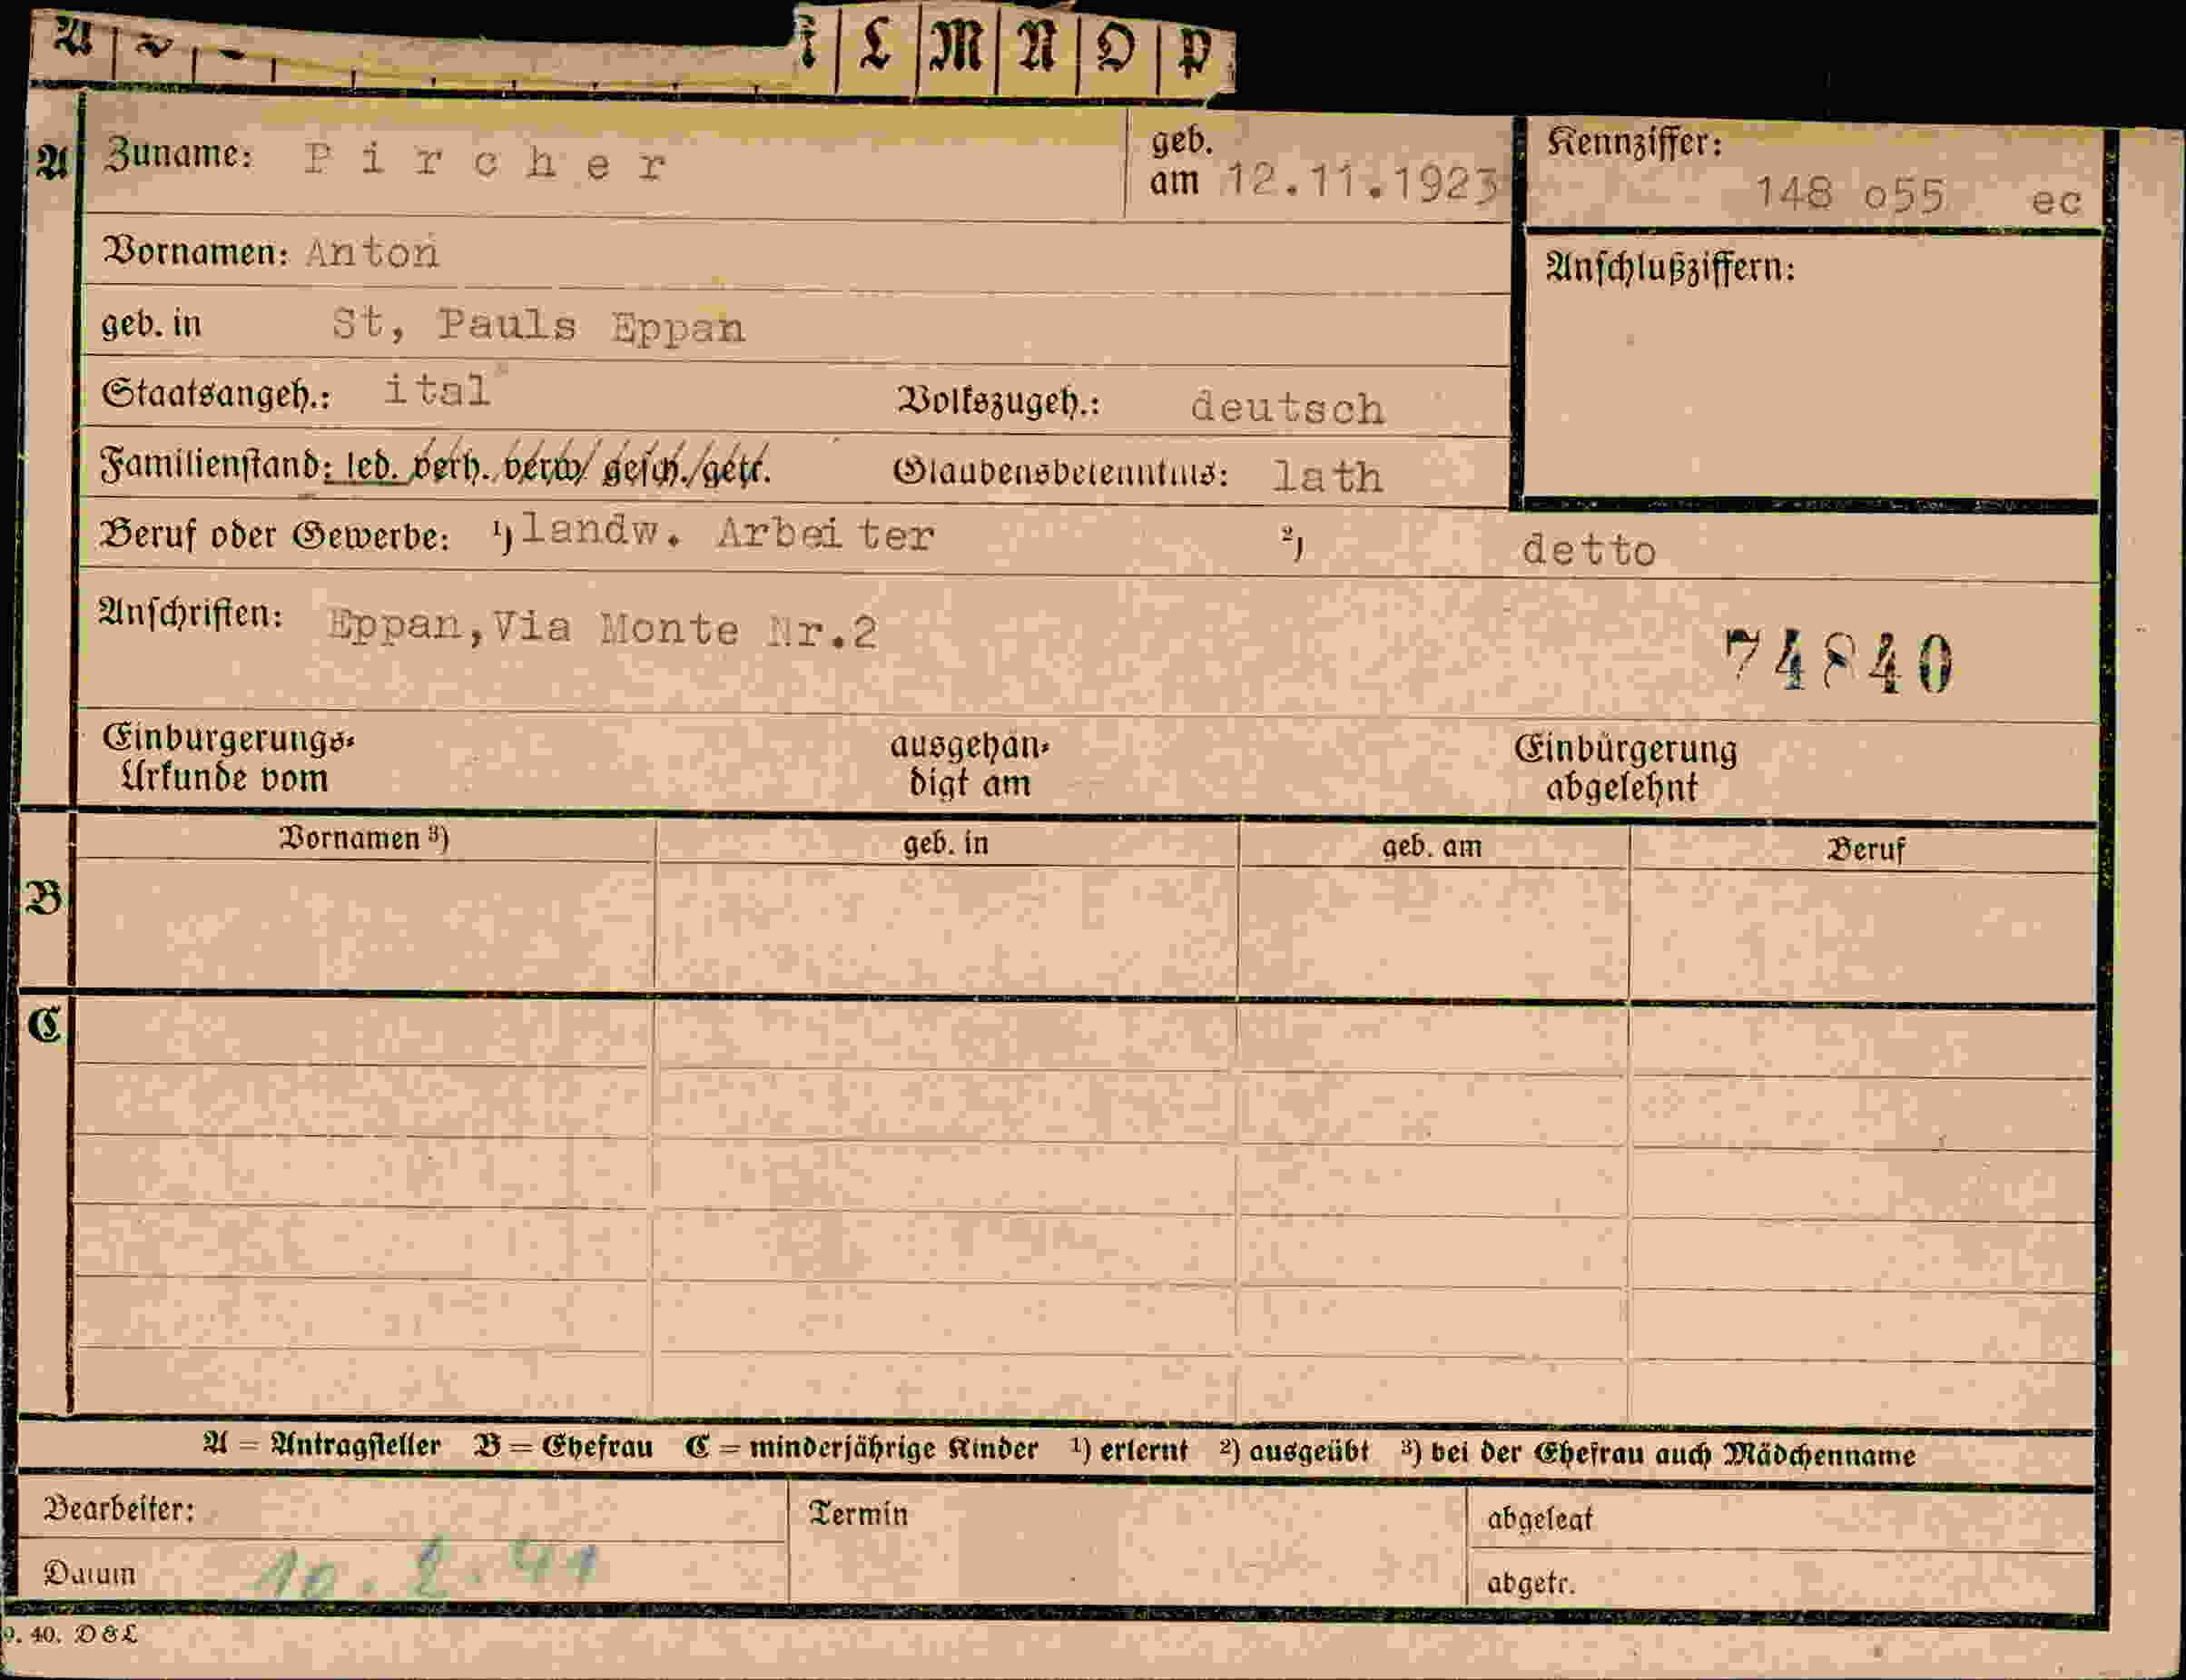 A
L M N O P
A Zuname: Pircher geb. am 12.11.1923 Kennziffer: 148 o55 ec
Vornamen: Anton Anschlußziffern:
geb. in St, Pauls Eppan
Staatsangeh.: ital Volkszugeh.: deutsch
Familienstand: led. verh. verw. gesch./getr. Glaubensbekenntnis: lath
Beruf oder Gewerbe: ¹) landw. Arbeiter ²) detto
Anschriften: Eppan,Via Monte Nr.2
74840
Einbürgerungs- ausgehän- Einbürgerung
Urkunde vom digt am abgelehnt
Vornamen ³) geb. in geb. am Beruf
B
C
A = Antragsteller B = Ehefrau C = minderjährige Kinder ¹) erlernt ²) ausgeübt ³) bei der Ehefrau auch Mädchenname
Bearbeiter: Termin abgelegt
Datum 10. 2. 41 abgetr.
9. 40. D & L